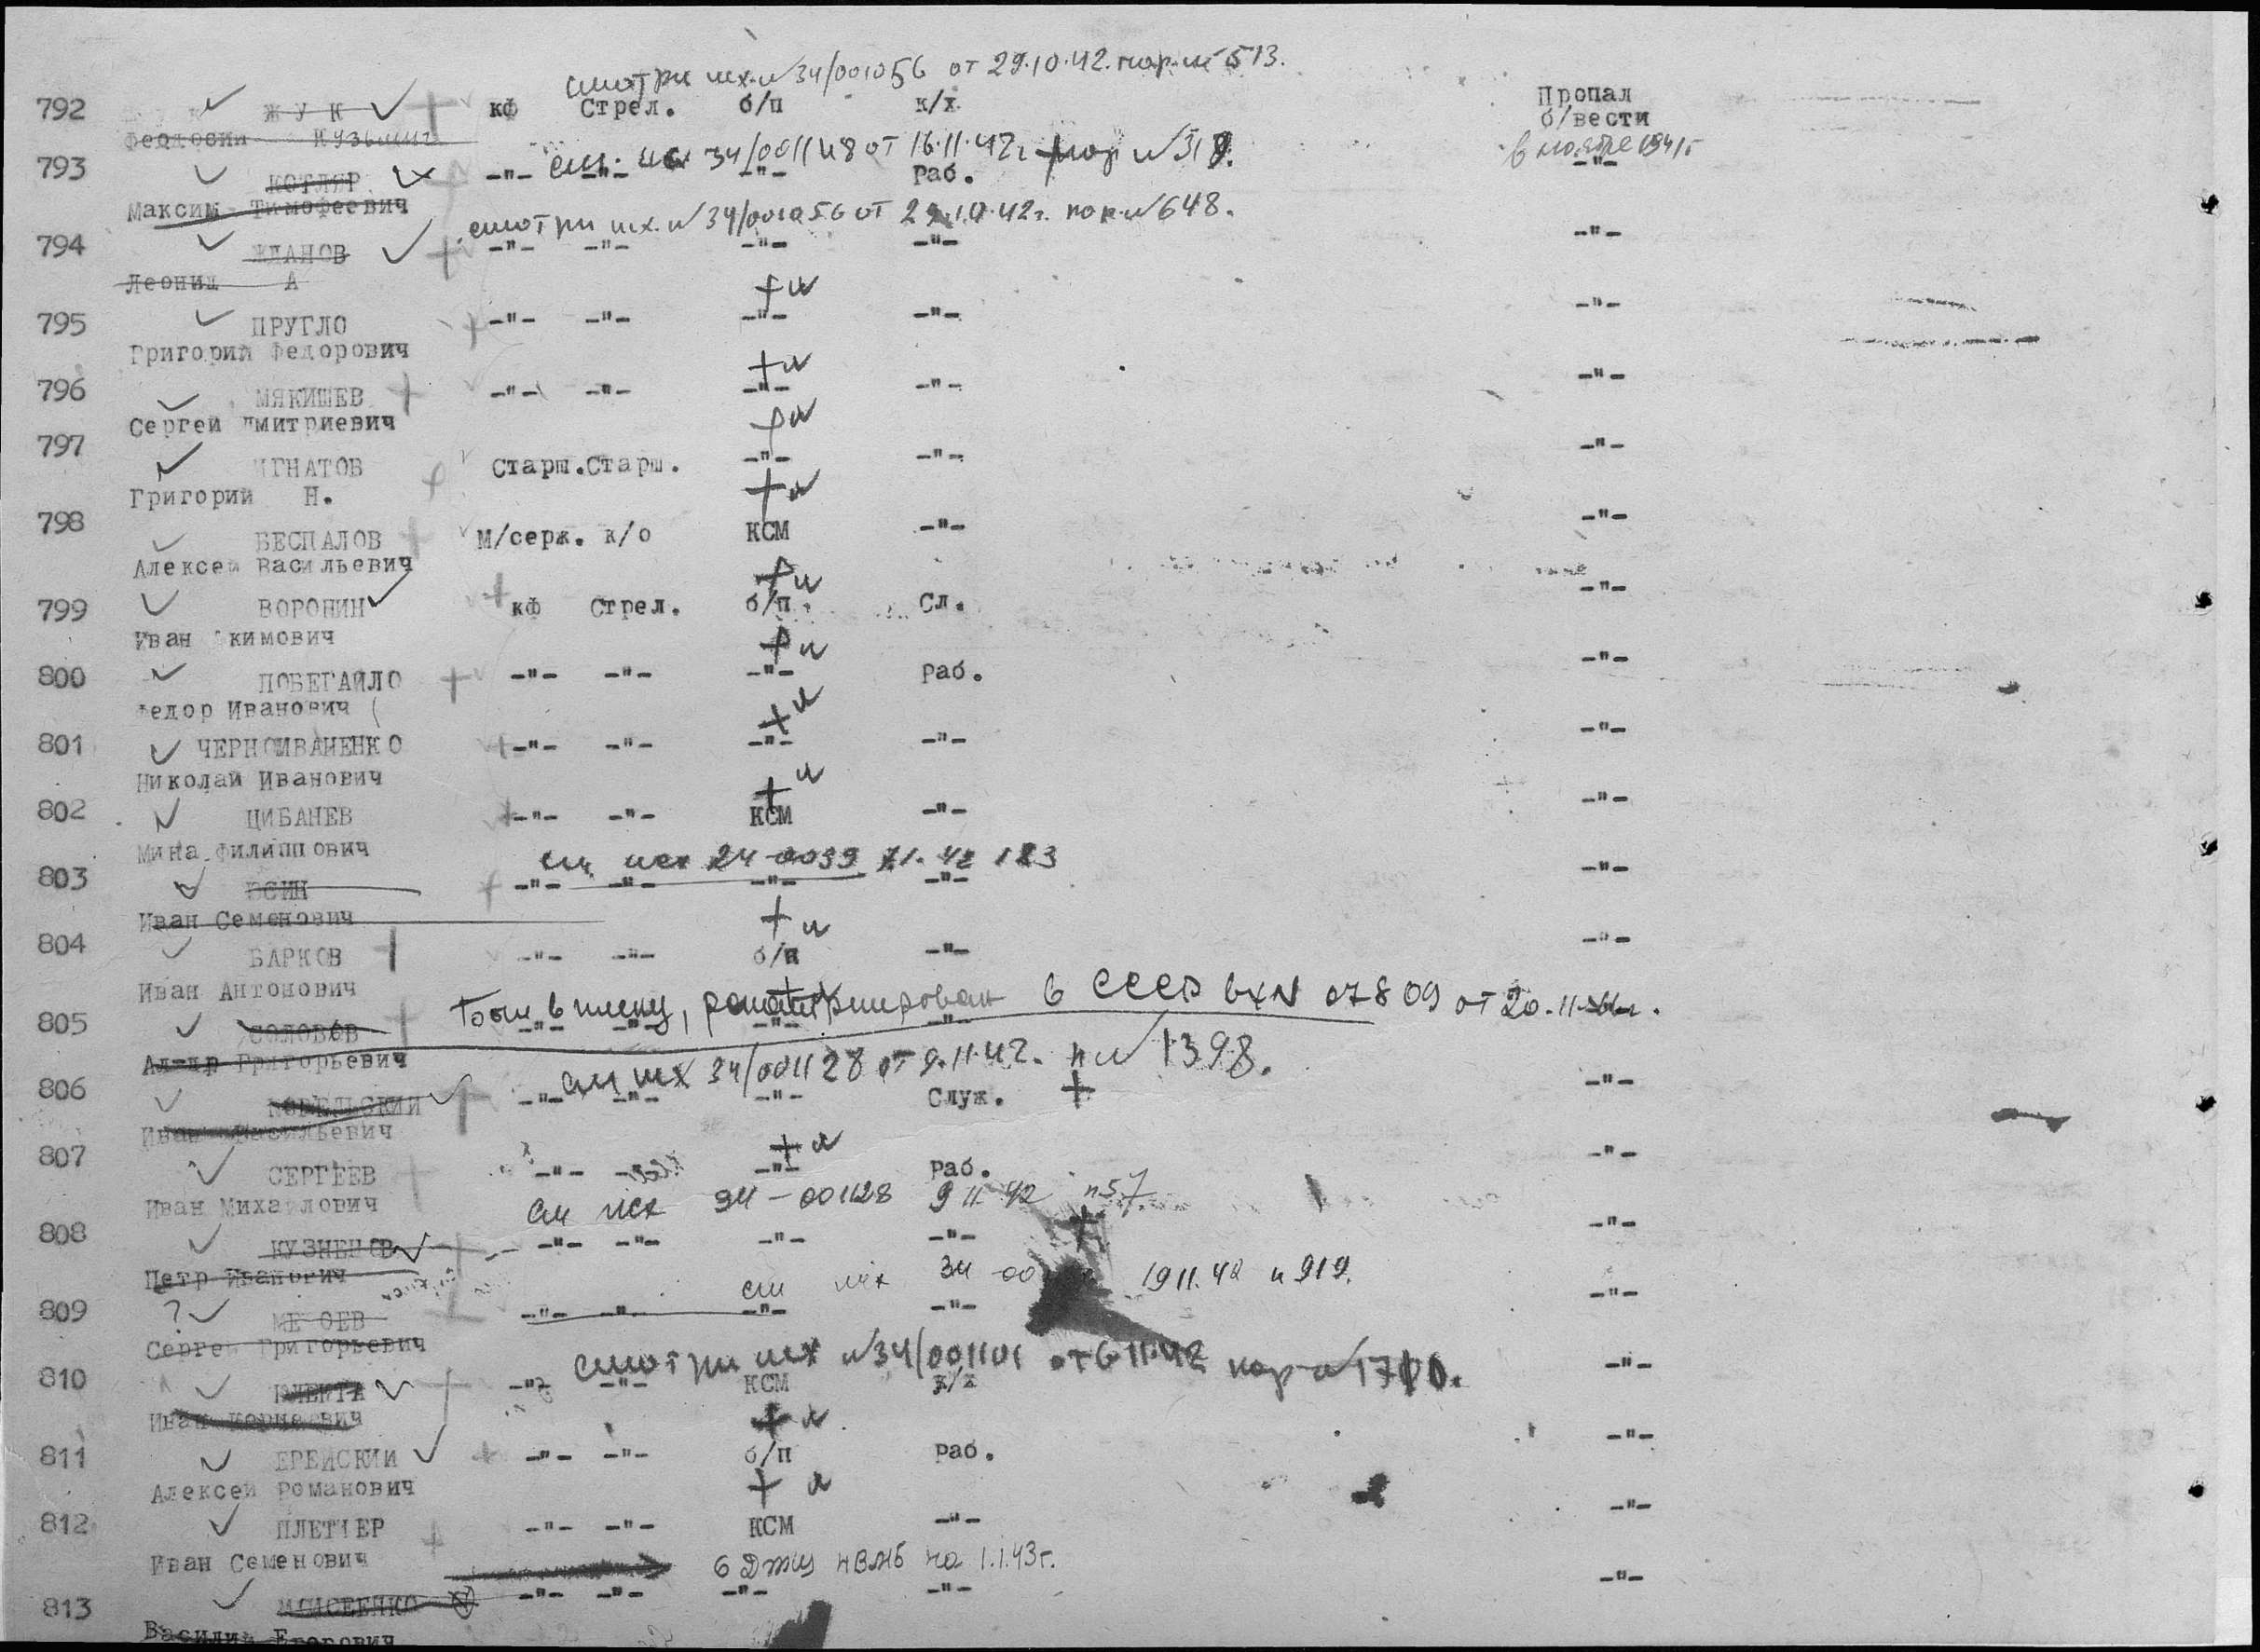 смотри исх. N 34/001056 от 29.10.42. пор. N 513.
792 ЖУК кф Стрел. б/п к/х Пропал б/вести
Феодосий Кузьмич в ноябре 1941г
см. исх 34/001148 от 16.11.42г пор N 318.
793 КОТЛЯР -"- -"- -"- Раб. -"-
Максим Тимофеевич
смотри исх. N 34/001056 от 29.10.42г. пор. N 648.
794 ЖДАНОВ -"- -"- -"- -"- -"-
Леонид А
+ и
795 ПРУГЛО -"- -"- -"- -"- -"-
Григорий Федорович
+ и
796 МЯКИШЕВ -"- -"- -"- -"- -"-
Сергей Дмитриевич
+ и
797 ИГНАТОВ Старш. Старш. -"- -"- -"-
Григорий Н.
+ и
798 БЕСПАЛОВ М/серж. к/о КСМ -"- -"-
Алексей Васильевич
+ и
799 ВОРОНИН кф Стрел. б/п Сл. -"-
Иван Якимович
+ и
800 ПОБЕГАЙЛО -"- -"- -"- Раб. -"-
Федор Иванович
+ и
801 ЧЕРНОИВАНЕНКО -"- -"- -"- -"- -"-
Николай Иванович
+ и
802 ЦИБАНЕВ -"- -"- КСМ -"- -"-
Мина Филиппович
см исх 24-0039 42 123
803 -"- -"- -"- -"- -"-
Иван Семенович
+ и
804 БАРКОВ -"- -"- б/п -"- -"-
Иван Антонович
Был в плену, репатриирован в СССР вх N 07809 от 20.11.
805 СОЛОВЬЕВ -"- -"- -"- -"-
Ал-др Григорьевич
см исх 34/001128 от 9.11.42. п N 1398.
806 -"- -"- -"- Служ. + -"-
Иван Васильевич
+ и
807 СЕРГЕЕВ -"- -"- -"- Раб. -"-
Иван Михайлович
см исх 34-001128 9 11 42 п57
808 КУЗНЕЦОВ -"- -"- -"- -"- + -"-
Петр Иванович
см исх 34 00 19 11.42 п 919.
809 ? -"- -"- -"- -"- -"-
Сергей Григорьевич
смотри исх N 34/001101 от 6.11.42 пор N 1710.
810 -"- -"- КСМ к/х -"-
Иван
+ и
811 ЕРЕЙСКИЙ -"- -"- б/п Раб. -"-
Алексей Романович
+ и
812 ПЛЕТНЕР -"- -"- КСМ -"- -"-
Иван Семенович
на 1.1.43г.
813 МОИСЕЕНКО -"- -"- -"- -"- -"-
Василий Егорович